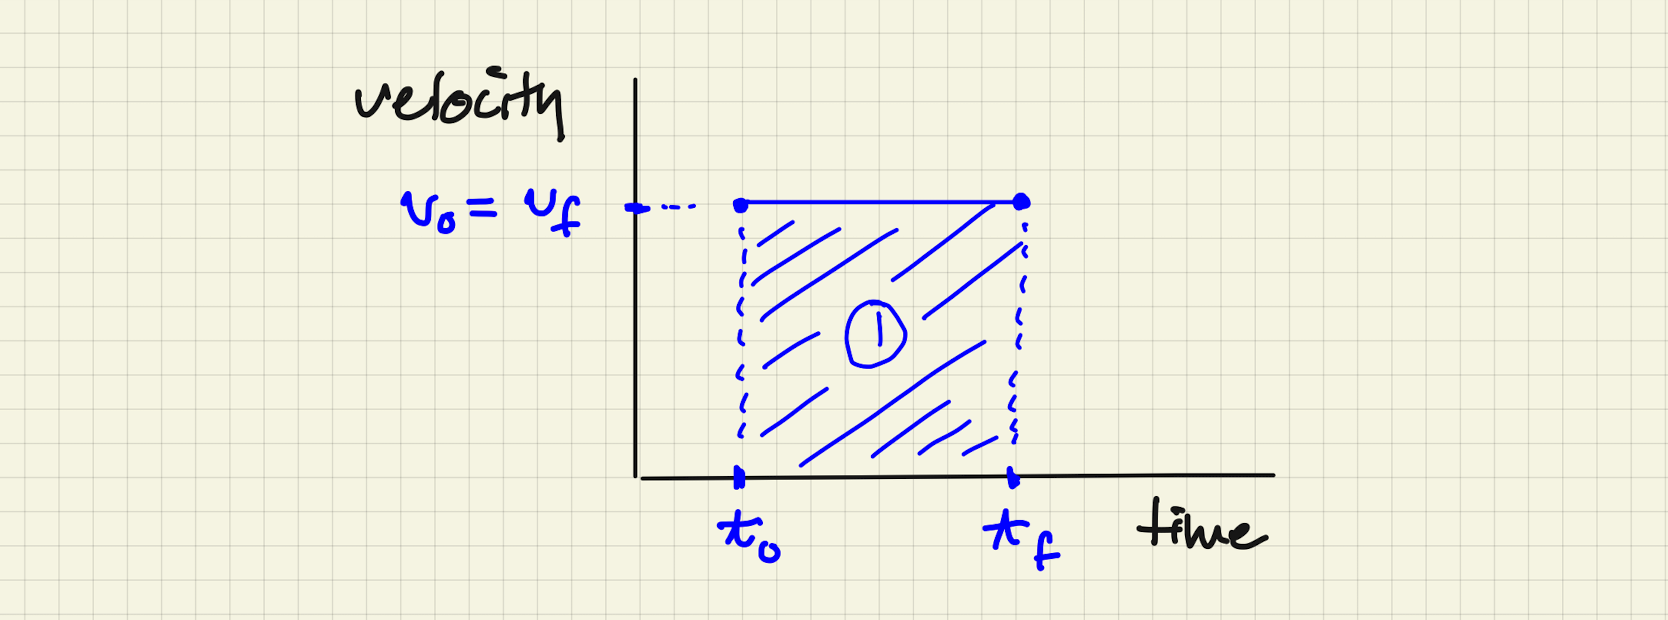 velocity
v₀ = v_f
①
t₀
t_f
time